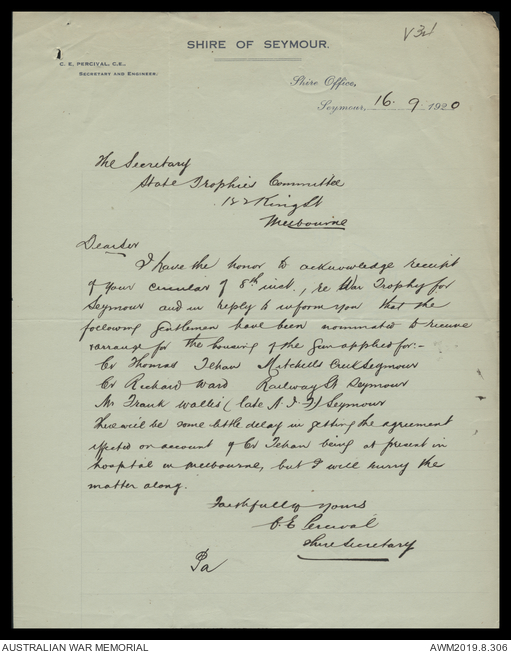 V31
SHIRE OF SEYMOUR.
C. E. PERCIVAL, C.E.,
SECRETARY AND ENGINEER.
Shire Office,
Seymour, 16. 9 1920
The Secretary
State Trophies Committee
182 King St
Melbourne
Dear Sir
I have the honor to acknowledge receipt
of your circular of 8th inst., re War Trophy for
Seymour and in reply to inform you that the
following gentlemen have been nominated to receive
& arrange for the housing of the Gun applied for:-
Cr Thomas Tehan Mitchells Creek Seymour
Cr Richard Ward Railway St Seymour
Mr Frank Wallis (late A.I.F) Seymour
There will be some little delay in getting the agreement
effected on account of Cr Tehan being at present in
hospital in Melbourne, but I will hurry the
matter along.
Faithfully yours
C. E. Percival
Shire Secretary
Pa
AUSTRALIAN WAR MEMORIAL
AWM2019.8.306